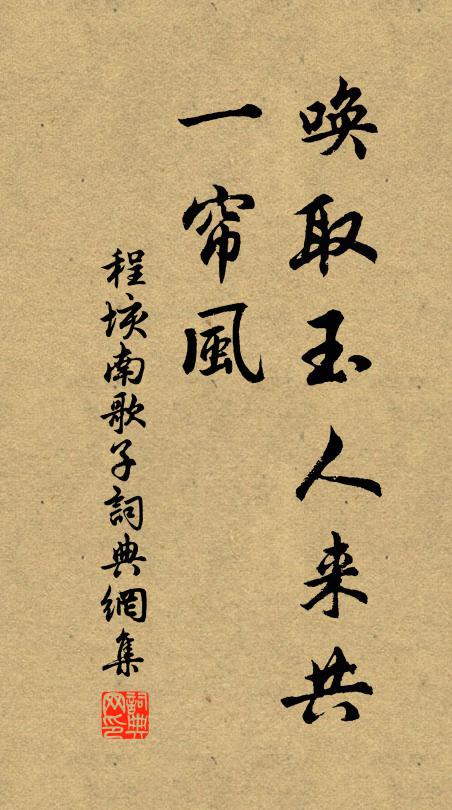 唤取玉人来共
一帘風
程垓南歌子詞典網集
詞典
网印